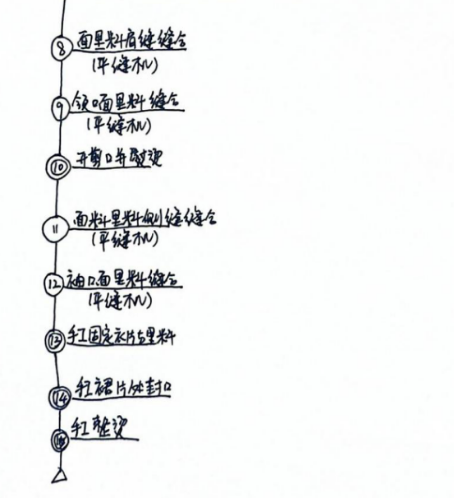 8 面里料肩缝缝合
(平缝机)
9 领口面里料缝合
(平缝机)
10 开剪口并整烫
11 面料里料侧缝缝合
(平缝机)
12 袖口面里料缝合
(平缝机)
13 手工固定衣片与里料
14 手工裙片处封口
15 手工整烫